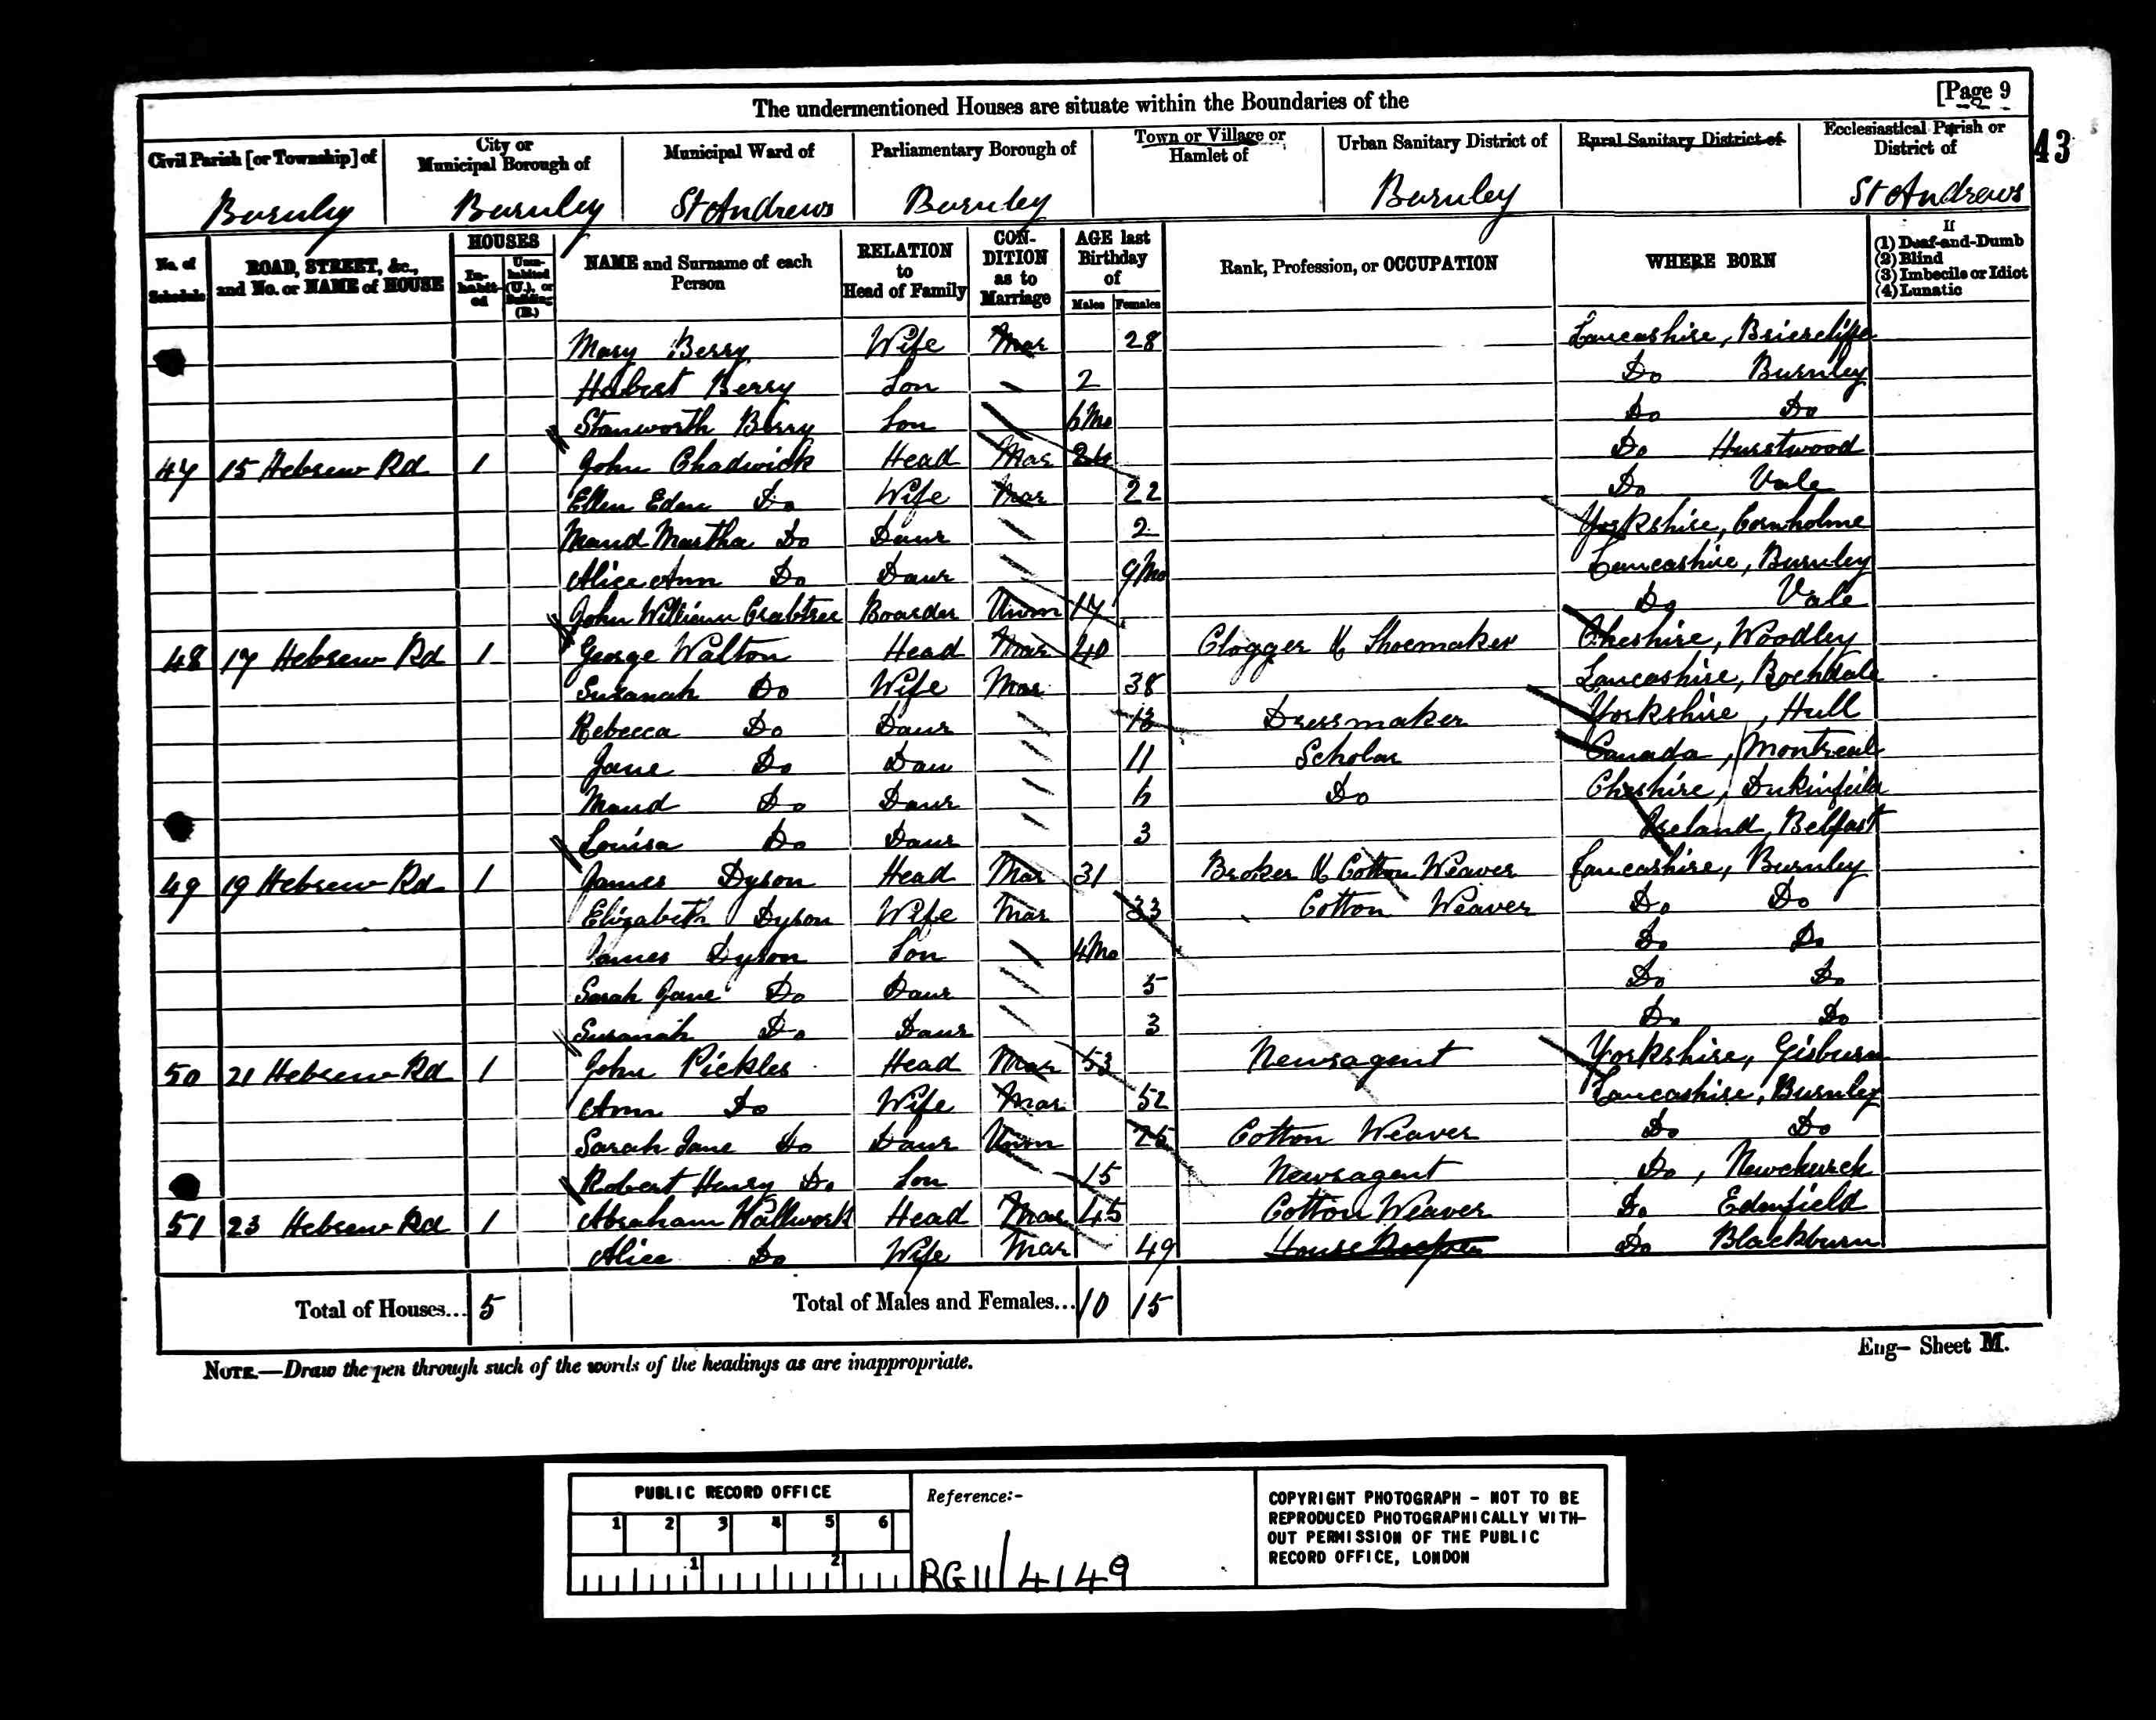 The undermentioned Houses are situate within the Boundaries of the
[Page 9
43
Civil Parish [or Township] of
City or Municipal Borough of
Municipal Ward of
Parliamentary Borough of
Town or Village or Hamlet of
Urban Sanitary District of
Rural Sanitary District of
Ecclesiastical Parish or District of
Burnley Burnley St Andrews Burnley Burnley St Andrews
No. of Schedule
ROAD, STREET, &c., and No. or NAME of HOUSE
HOUSES
In-habit-ed
Unin-habited (U.), or Building (B.)
NAME and Surname of each Person
RELATION to Head of Family
CON-DITION as to Marriage
AGE last Birthday of
Males Females
Rank, Profession, or OCCUPATION
WHERE BORN
If
(1) Deaf-and-Dumb
(2) Blind
(3) Imbecile or Idiot
(4) Lunatic
Mary Berry Wife Mar 28 Lancashire, Briercliffe
Berry Son 2 Do Burnley
Stanworth Berry Son 6 Mo Do Do
47 15 Hebrew Rd 1 John Chadwick Head Mar Do Hurstwood
Ellen Eden Do Wife Mar 22 Do Vale
Maud Martha Do Daur 2 Yorkshire, Cornholme
Alice Ann Do Daur 9 Mo Lancashire, Burnley
John William Crabtree Boarder Unm 17 Do Vale
48 17 Hebrew Rd 1 George Walton Head Mar 40 Clogger & Shoemaker Cheshire, Woodley
Susanah Do Wife Mar 38 Lancashire, Rochdale
Rebecca Do Daur 13 Dressmaker Yorkshire, Hull
Jane Do Dau 11 Scholar Canada, Montreal
Maud Do Daur 6 Do Cheshire, Dukinfeild
Louisa Do Daur 3 Ireland, Belfast
49 19 Hebrew Rd 1 James Dyson Head Mar 31 Broker & Cotton Weaver Lancashire, Burnley
Elizabeth Dyson Wife Mar 33 Cotton Weaver Do Do
James Dyson Son 4 Mo Do Do
Sarah Jane Do Daur 5 Do Do
Susanah Do Daur 3 Do Do
50 21 Hebrew Rd 1 John Pickles Head Mar 53 Newsagent Yorkshire, Gisburn
Ann Do Wife Mar 52 Lancashire, Burnley
Sarah Jane Do Daur Unm 25 Cotton Weaver Do Do
Robert Henry Do Son 15 Newsagent Do, Newchurch
51 23 Hebrew Rd 1 Abraham Wallwork Head Mar 45 Cotton Weaver Do Edenfield
Alice Do Wife Mar 49 House Keeper Do Blackburn
Total of Houses... 5 Total of Males and Females... 10 15
NOTE.—Draw the pen through such of the words of the headings as are inappropriate.
Eng— Sheet M.
PUBLIC RECORD OFFICE
1 2 3 4 5 6
1 2
Reference:-
RG 11/4149
COPYRIGHT PHOTOGRAPH - NOT TO BE
REPRODUCED PHOTOGRAPHICALLY WITH-
OUT PERMISSION OF THE PUBLIC
RECORD OFFICE, LONDON